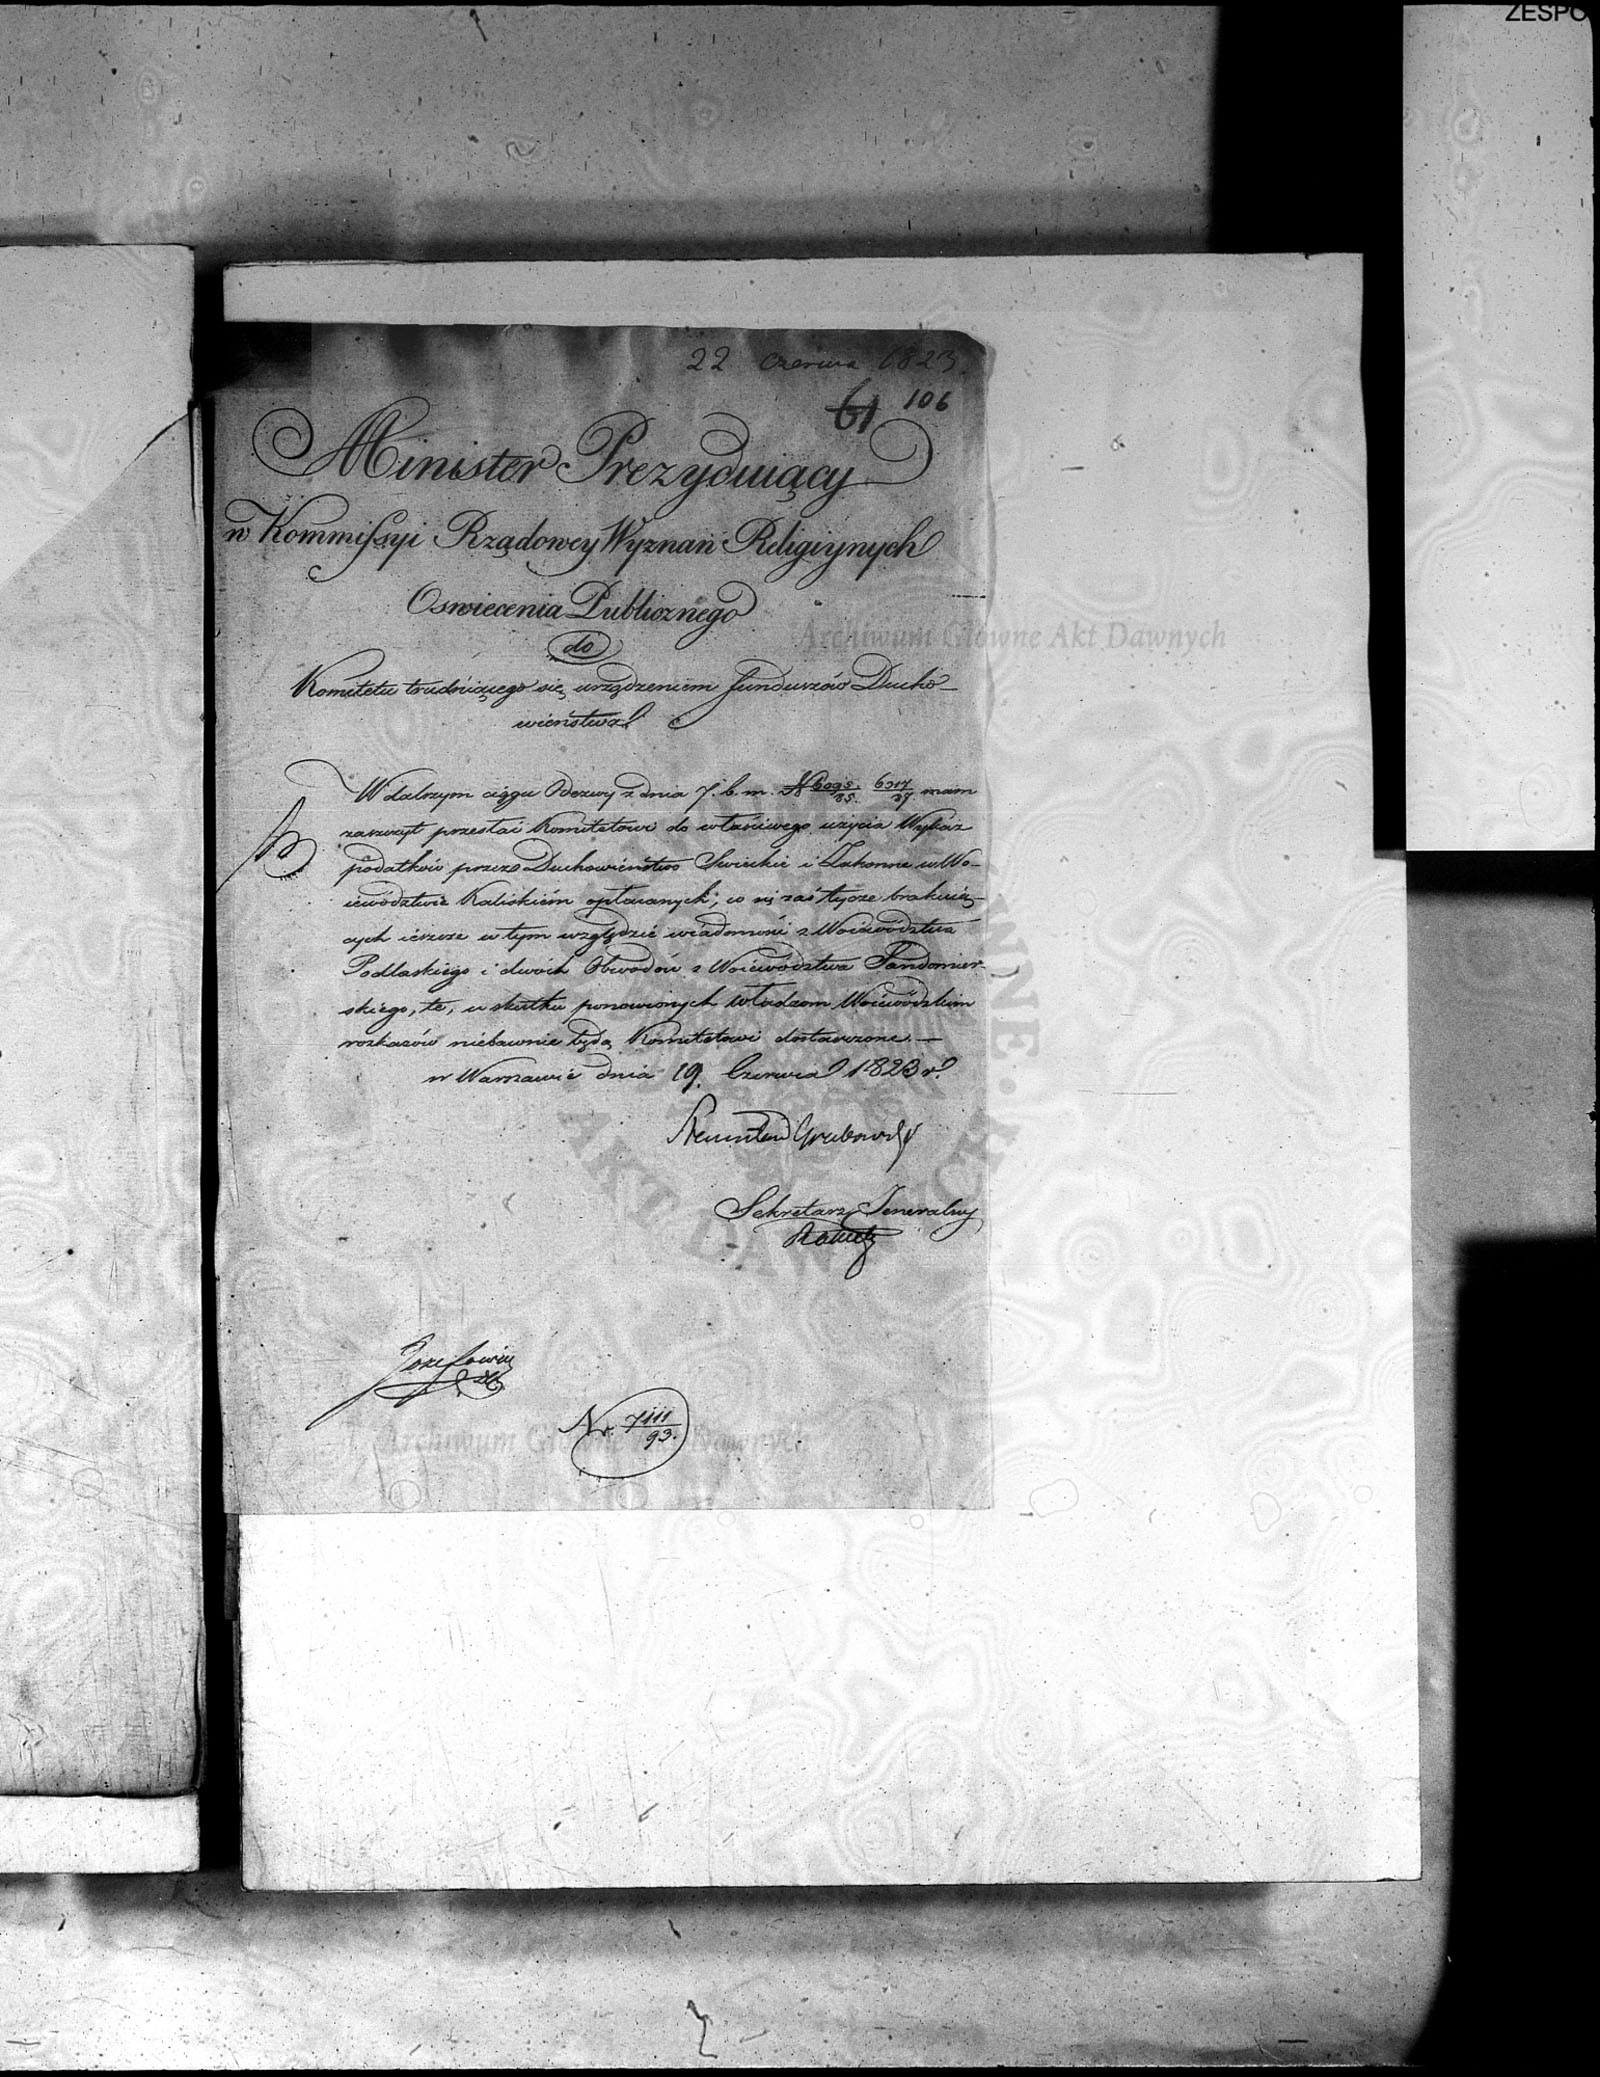 ZESPO
22 Czerwca 1823
61 106
Minister Prezyduiący
w Kommissyi Rządowey Wyznań Religiynych
Oswiecenia Publicznego
do
Komitetu trudniącego się urządzeniem funduszów Ducho-
wieństwa
W dalszym ciągu Odezwy z dnia 7. b. m. N 6095/25. 6317/27. mam
zaszczyt przesłać Komitetowi do właściwego użycia Wykaz
podatków przez Duchowieństwo Swieckie i Zakonne w Wo-
iewództwie Kaliskiém opłacanych; co się zaś tycze brakuią-
cych ieszcze w tym względzie wiadomości z Woiewództwa
Podlaskiégo i dwóch Obwodów z Woiewództwa Sandomier-
skiégo, te, w skutku ponowionych Władzom Woiewódzkim
rozkazów niebawnie będą Komitetowi dostarczone. —
w Warszawie dnia 19. Czerwca 1823 r.
Stanisław Grabowski
Sekretarz Jeneralny
Józefowicz
Nr. 7111/93.
Archiwum Główne Akt Dawnych
Archiwum Główne Akt Dawnych
AKT DAWNYCH